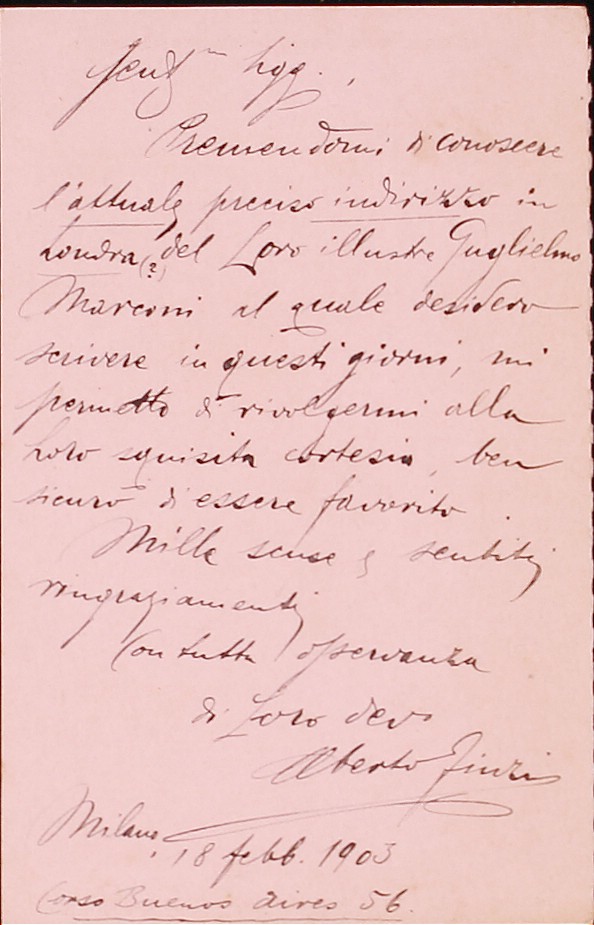 Gent.mi Sigg.,
Premendomi di conoscere
l'attuale preciso indirizzo in
Londra (?) del Loro illustre Guglielmo
Marconi al quale desidero
scrivere in questi giorni, mi
permetto di rivolgermi alla
Loro squisita cortesia, ben
sicuro di essere favorito.
Mille scuse e sentiti
ringraziamenti
Con tutta osservanza
di Loro devo
Alberto Finzi
Milano, 18 febb. 1903
Corso Buenos Aires 56.